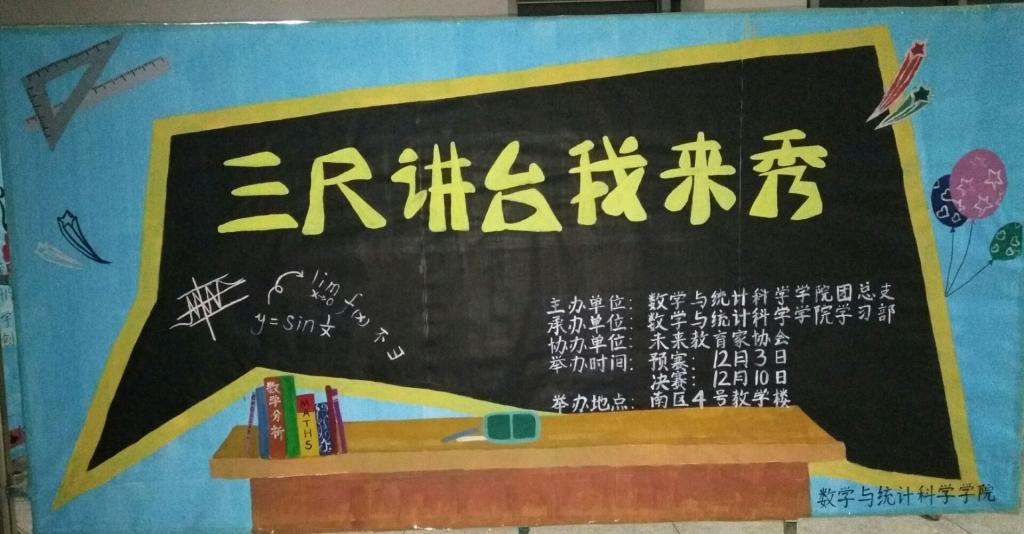 三尺讲台我来秀
lim
x→0
f(x) 不∃
y=sin 1/x
主办单位：数学与统计科学学院团总支
承办单位：数学与统计科学学院学习部
协办单位：未来教育家协会
举办时间：预赛：12月3日
决赛：12月10日
举办地点：南区4号教学楼
数学分析
MATHS
数学与统计科学学院